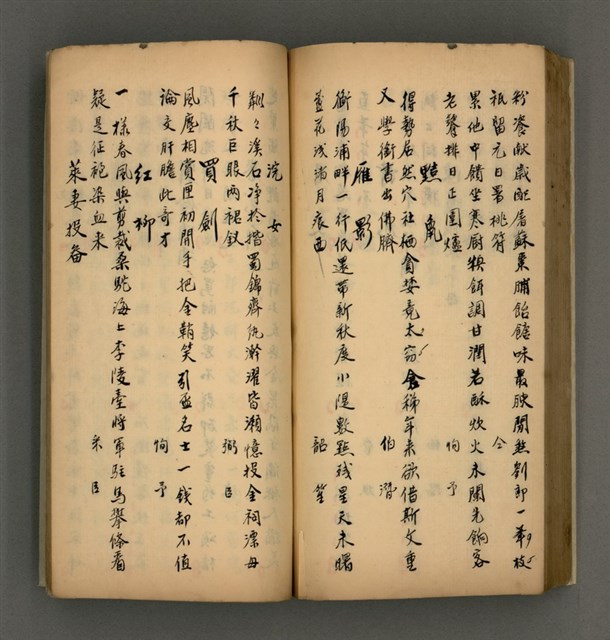 粉餈献歲配屠蘇棗脯飴餹味最腴閒煞劉郎一筆枝
祇留元日署桃符　今
累他中饋坐寒厨粔餌調甘潤若酥炊火未闌先餉客
老饕排日正圍爐　恂予
黠鼠
得勢居然穴社栖貪婪竟太窃倉稊年来欲借斯文重
又學銜書出佛臍　伯潛
雁影
衡陽浦畔一行低還帶新秋度小隄數點殘星天未曙
蘆花浅渚月痕西　韶笙
浣女
粼々溪石净於揩蜀錦齊紈澣濯皆瀨憶投金祠漂母
千秋巨眼兩裙釵　弼臣
買劍
風塵相賞匣初開手把金鞘笑引盃名士一錢都不值
論文肝膽此奇才　恂予
紅柳
一樣春風與剪裁桑駝海上李陵臺將軍駐馬攀條看
疑是征袍染血来　采臣
萊妻投畚